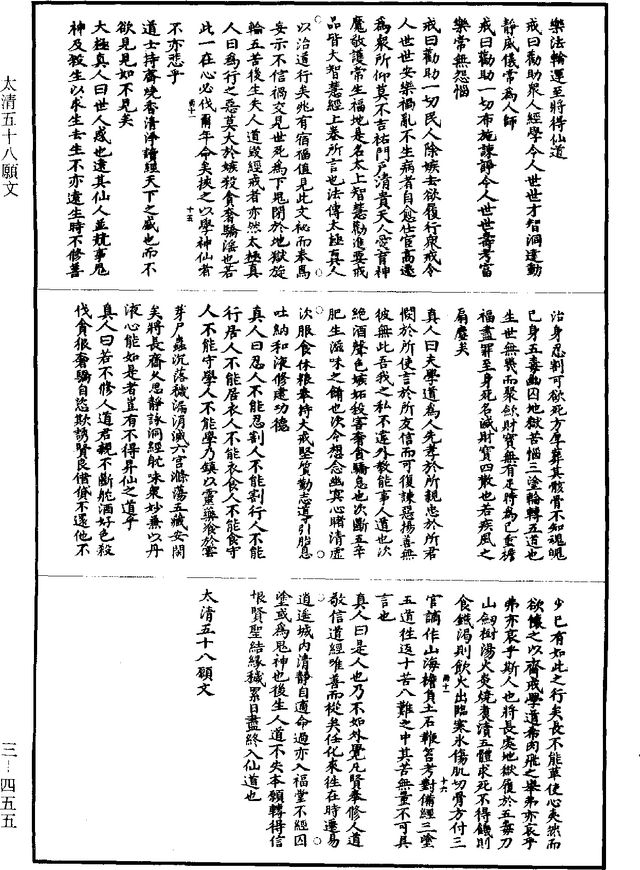 樂法輪運至將得仙道
戒曰勸助衆人經學令人世世才智洞達動
靜威儀常爲人師
戒曰勸助一切布施諫諍令人世世壽考富
樂常無怨惱
戒曰勸助一切民人除嫉去欲履行衆戒令
人世世安樂禍亂不生病者自愈仕官高遷
爲衆所仰莫不吉祐門戶清貴天人愛育神
魔敬護常生福地是名太上智慧勸進要戒
品皆大智慧經上卷所言也法傳太極真人
以治道行矣兆有宿福值見此文秘而奉焉
妄示不信禍交見世死爲下鬼閉於地獄旋
輪五苦後生失人道毀經戒者亦然太極真
人曰爲行之惡莫大於嫉殺貪奢驕淫也若
此一在心必伐爾年命矣挾之以學神仙者
不亦悲乎
道士持齋燒香清淨讀經天下之盛也而不
欲見見如不見矣
大極真人曰世人惑也達其仙人並競事鬼
神及教生以求生去生不亦遠生時不修善
治身忍割可欲死方厚葬其骸骨不知魂魄
已身五毒幽囚地獄苦惱三塗輪轉五道也
生世無畏而聚歛財寶無有足時爲己重擔
福盡罪至身死名滅財寶四散也若疾風之
扇塵矣
真人曰夫學道爲人先孝於所親忠於所君
憫於所使言於所友信而可復諫惡揚善無
彼無此吾我之私不違外教能事人道也次
絕酒聲色嫉妬殺害奢貪驕怠也次斷五辛
肥生滋味之餚也次令想念幽冥心睹清虛
次服食休粮奉持大戒堅質勤志導引胎息
吐納和液修建功德
真人曰忍人不能忍割人不能割行人不能
行居人不能居衣人不能衣食人不能食守
人不能守學人不能學乃鎮以靈藥食於雲
芽尸蟲沉落穢漏消滅六宮滌蕩五藏安閑
矣將長齋久思靜詠洞經耽味衆妙兼以丹
液心能如是者豈有不得昇仙之道乎
真人曰若不修人道君親不斷酖酒好色殺
伐貪狠奢驕自恣欺誘賢良借貸不還他不
少已有如此之行矣長不能革使心夷然而
欲懷之以齋戒學道希肉飛之舉弗亦哀乎
弗亦哀乎斯人也將長處地獄履於五毒刀
山劒樹湯火炎燒煑漬五體求死不得饑則
食鐵渴則飲火出臨寒氷傷肌切骨方付三
官謫作山海擔負土石鞭笞考對備經三塗
五道徃返十苦八難之中其苦無量不可具
言也
真人曰是人也乃不如外覺凡賢奉修人道
敬信道經唯善而從矣任化來徃在時遷易
逍遥城內清靜自適命過亦入福堂不經囚
塗或爲鬼神也後生人道不失本願轉得信
根賢聖結緣穢累日盡終入仙道也
太清五十八願文
太清五十八願文
三—四五五
十五
十六